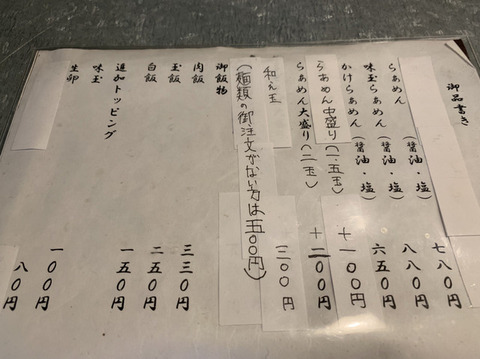 御品書き
らぁめん（醤油・塩） 七八〇円
味玉らぁめん（醤油・塩） 八八〇円
かけらぁめん（醤油・塩） 六五〇円
らぁめん中盛り（一.五玉） +一〇〇円
らぁめん大盛り（二玉） +二〇〇円
和え玉 三〇〇円
（麺類の御注文がない方は五〇〇円）
御飯物
肉飯 三三〇円
玉飯 二五〇円
白飯 一五〇円
追加トッピング
味玉 一〇〇円
生卵 八〇円